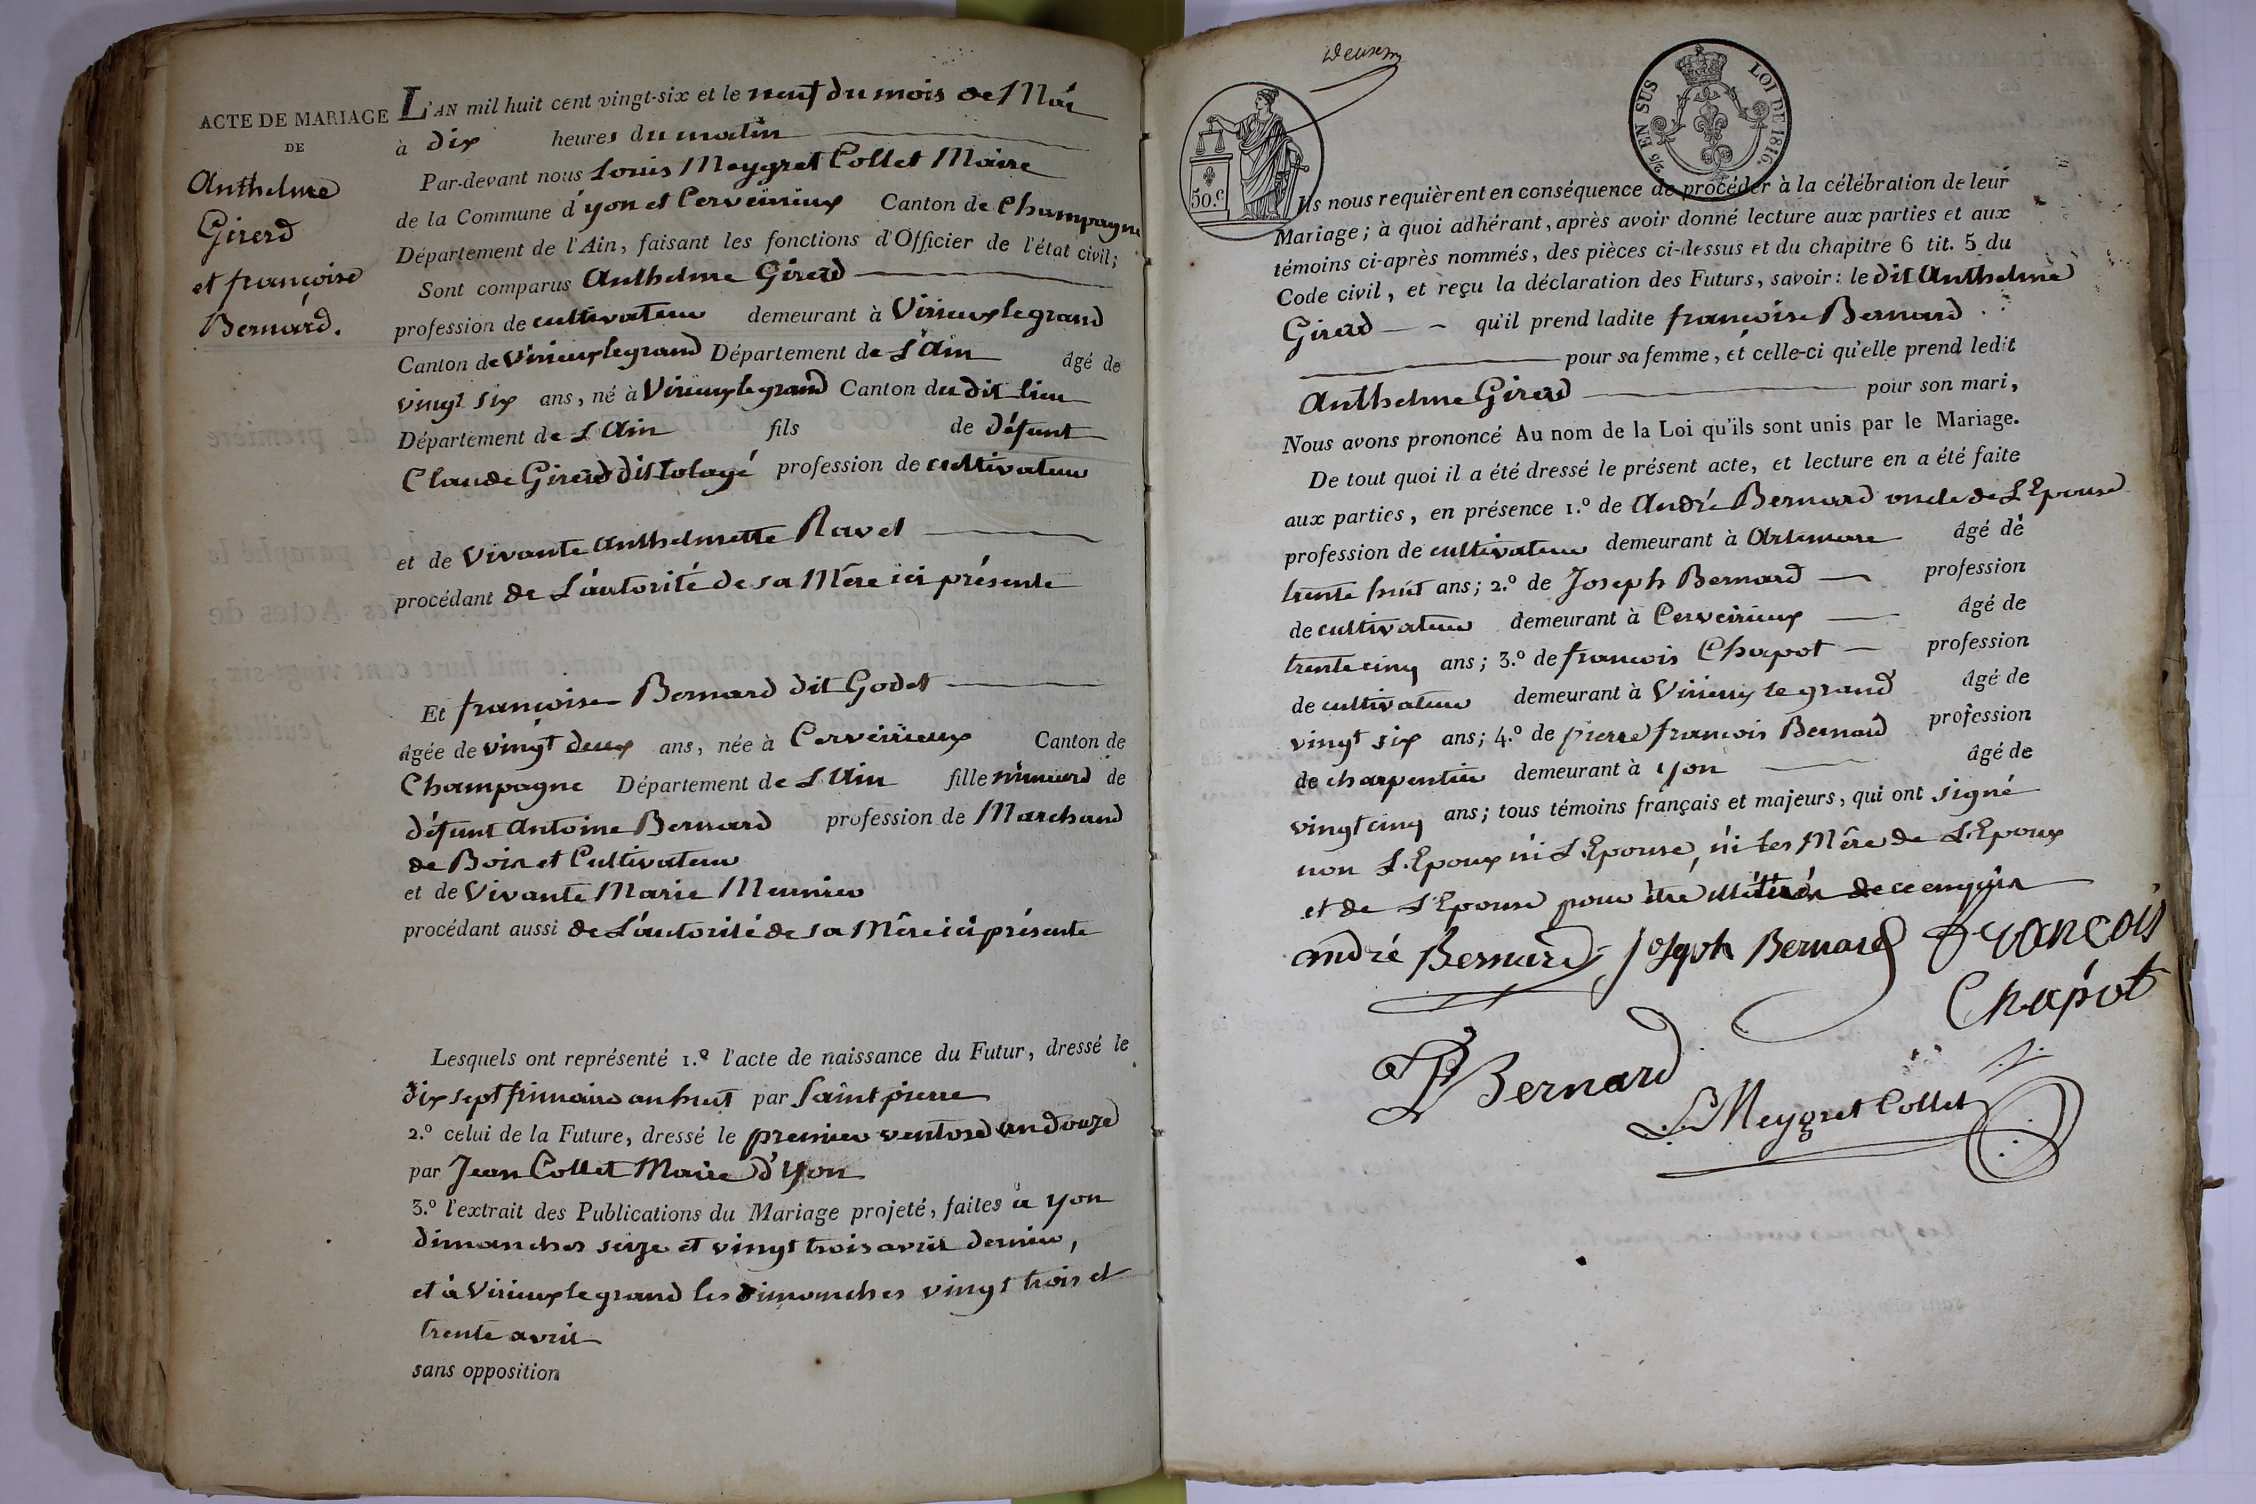 ACTE DE MARIAGE
DE
Anthelme
Girerd
et françoise
Bernard.
L'AN mil huit cent vingt-six et le neuf du mois de Mai
à dix heures du matin
Par-devant nous Louis Meygret Collet Maire
de la Commune d'yon et Cerveirieux Canton de Champagne
Département de l'Ain, faisant les fonctions d'Officier de l'état civil;
Sont comparus Anthelme Girerd
profession de cultivateur demeurant à Virieux le grand
Canton de Virieux le grand Département de L'Ain âgé de
vingt six ans, né à Virieux le grand Canton du dit lieu
Département de L'Ain fils de défunt
Claude Girerd dit tolagé profession de cultivateur
et de Vivante Anthelmette Ravet
procédant de L'autorité de sa Mère ici présente
Et françoise Bernard dit Godet
âgée de vingt deux ans, née à Cerveirieux Canton de
Champagne Département de L'Ain fille mineure de
défunt Antoine Bernard profession de Marchand
de Bois et Cultivateur
et de Vivante Marie Meunier
procédant aussi de L'autorité de sa Mère ici présente
Lesquels ont représenté 1.º l'acte de naissance du Futur, dressé le
dix sept frimaire an huit par Saint pierre
2.º celui de la Future, dressé le premier ventose an douze
par Jean Collet Maire d'Yon
3.º l'extrait des Publications du Mariage projeté, faites à yon
dimanches seize et vingt trois avril dernier,
et à Virieux le grand les dimanches vingt trois et
trente avril
sans opposition
Deuxem
50.c
2/5 EN SUS LOI DE 1816.
Ils nous requièrent en conséquence de procéder à la célébration de leur
Mariage; à quoi adhérant, après avoir donné lecture aux parties et aux
témoins ci-après nommés, des pièces ci-dessus et du chapitre 6 tit. 5 du
Code civil, et reçu la déclaration des Futurs, savoir: le dit Anthelme
Girerd qu'il prend ladite françoise Bernard
pour sa femme, et celle-ci qu'elle prend ledit
Anthelme Girerd pour son mari,
Nous avons prononcé Au nom de la Loi qu'ils sont unis par le Mariage.
De tout quoi il a été dressé le présent acte, et lecture en a été faite
aux parties, en présence 1.º de André Bernard oncle de L'Epouse
profession de cultivateur demeurant à Artemare âgé de
trente huit ans; 2.º de Joseph Bernard profession
de cultivateur demeurant à Cerveirieux âgé de
trente cinq ans; 3.º de francois Chapot profession
de cultivateur demeurant à Virieux le grand âgé de
vingt six ans; 4.º de pierre francois Bernard profession
de charpentier demeurant à yon âgé de
vingt cinq ans; tous témoins français et majeurs, qui ont signé
non L'Epoux ni L'Epouse, ni les Mère de L'Epoux
et de L'Epouse pour être illétirés de ce enquis
andré Bernard Joseph Bernard François
Chapot
Bernard
L. Meygret Collet